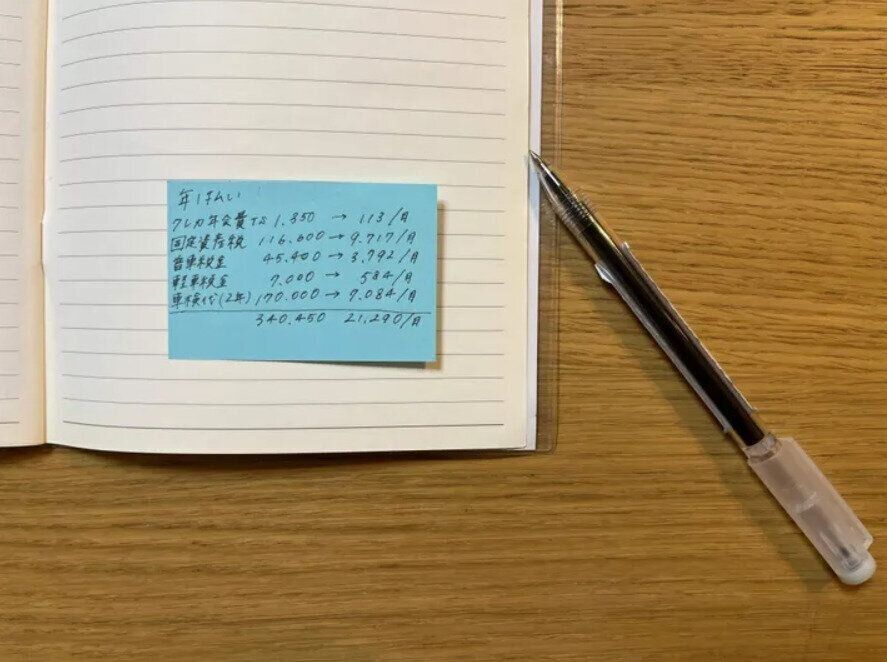 年1払い
クレカ年会費TS 1.350 → 113/月
固定資産税 116.600 → 9.717/月
普車税金 45.400 → 3.792/月
軽車税金 7.000 → 584/月
車検代(2年) 170.000 → 7.084/月
340.450 21.290/月